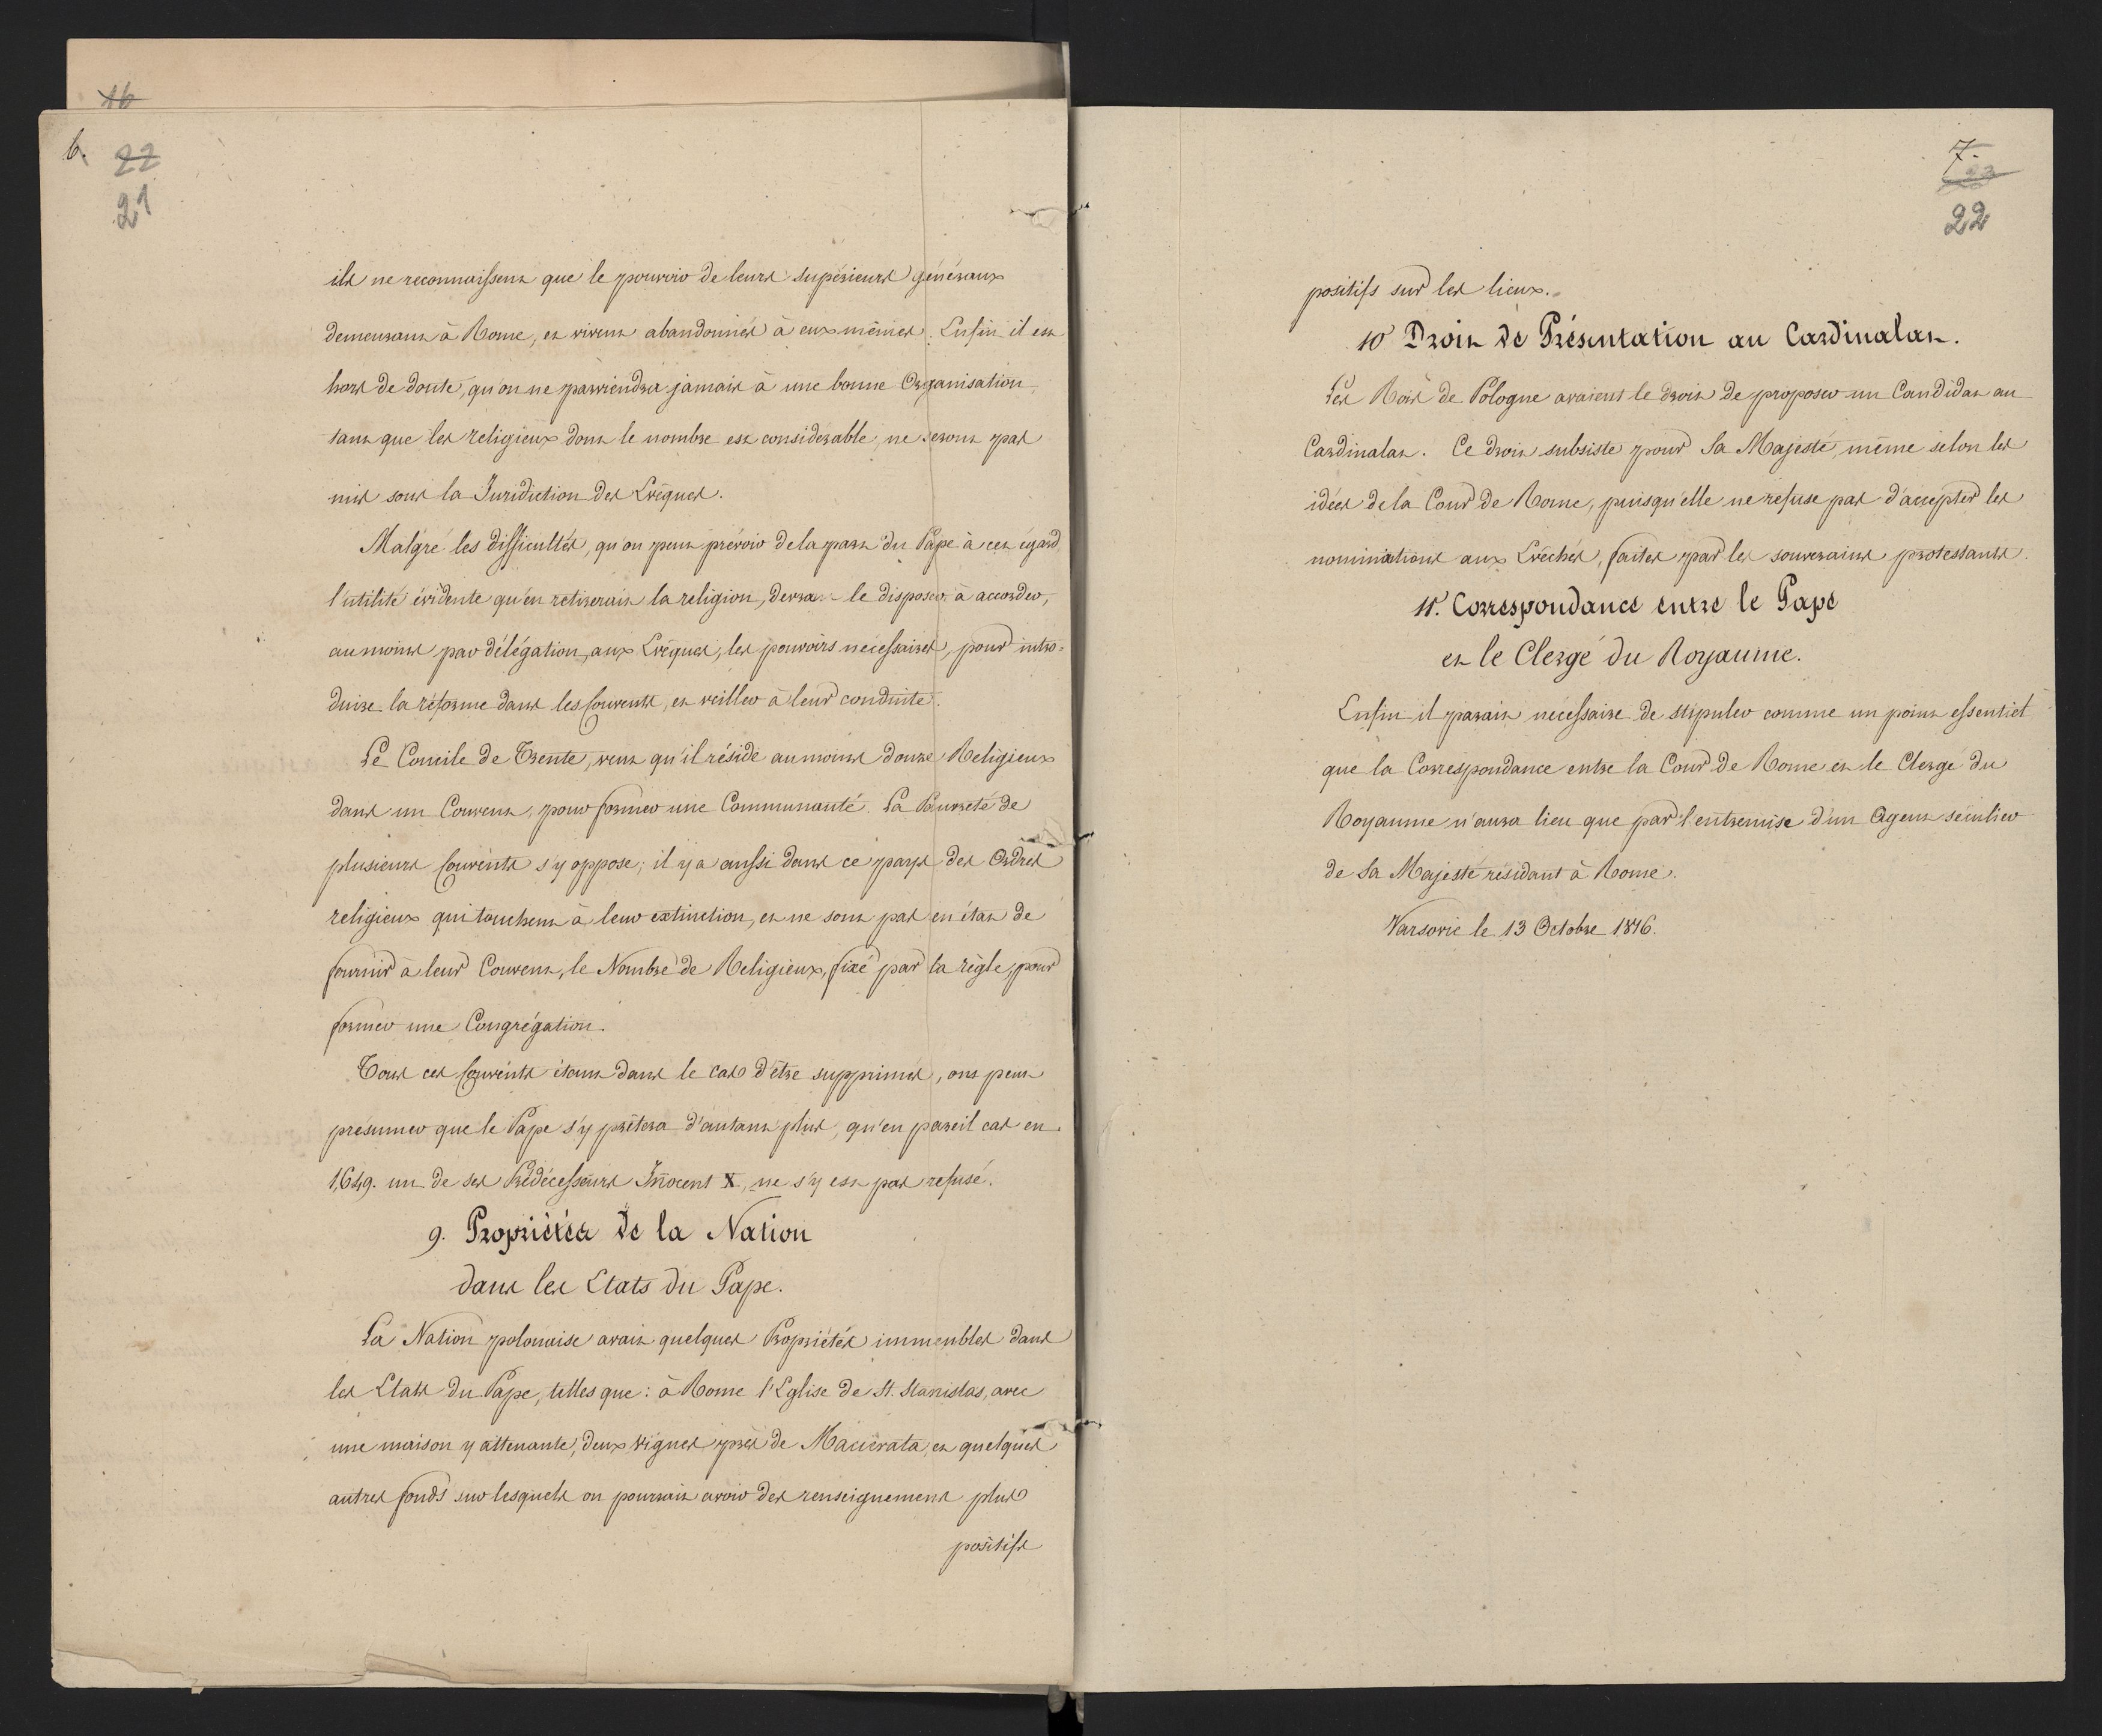 16
6.
22
21
ils ne reconnaissent que le pouvoir de leurs supérieurs généraux
demeurans à Rome, et vivent abandonnés à eux mêmes. Enfin il est
hors de doute, qu'on ne parviendra jamais à une bonne Organisation,
tant que les religieux dont le nombre est considerable, ne seront pas
mis sous la Juridiction des Evêques.
Malgré les difficultés, qu'on peut prévoir de la part du Pape à cet égard
l'utilité évidente qu'en retirerait la religion, devra le disposer à accorder,
au moins par délégation, aux Evêques, les pouvoirs nécessaires, pour intro-
duire la réforme dans les Couvents, et veiller à leur conduite.
Le Concile de Trente, veut qu'il réside au moins douze Religieux
dans un Couvent, pour former une Communauté. La Pauvreté de
plusieurs Couvents s'y oppose; il y a aussi dans ce pays des Ordres
religieux qui touchent à leur extinction, et ne sont pas en état de
fournir à leur Couvent, le Nombre de Religieux, fixé par la règle, pour
former une Congrégation.
Tous ces Couvents étant dans le cas d'être supprimés, ont peut
présumer que le Pape s'y prêtera d'autant plus, qu'en pareil cas en
1649. un de ses Prédécesseurs Innocent X, ne s'y est pas refusé.
9. Propriétés de la Nation
dans les Etats du Pape.
La Nation polonaise avait quelques Propriétés immeubles dans
les Etats du Pape, telles que: à Rome l'Eglise de St. Stanislas, avec
une maison y attenante, deux vignes près de Macerata, et quelques
autres fonds sur lesquels on pourrait avoir des renseignements plus
positifs
7.
22
positifs sur les lieux.
10 Droit de Présentation au Cardinalat.
Les Rois de Pologne avaient le droit de proposer un Candidat au
Cardinalat. Ce droit subsiste pour Sa Majesté, même selon les
idées de la Cour de Rome, puisqu'elle ne refuse pas d'accepter les
nominations aux Evêchés, faites par les souverains protestants.
11. Correspondance entre le Pape
et le Clergé du Royaume.
Enfin il parait nécessaire de stipuler comme un point essentiel
que la Correspondance entre la Cour de Rome et le Clergé du
Royaume n'aura lieu que par l'entremise d'un Agent séculier
de Sa Majesté résidant à Rome.
Varsovie le 13 Octobre 1816.